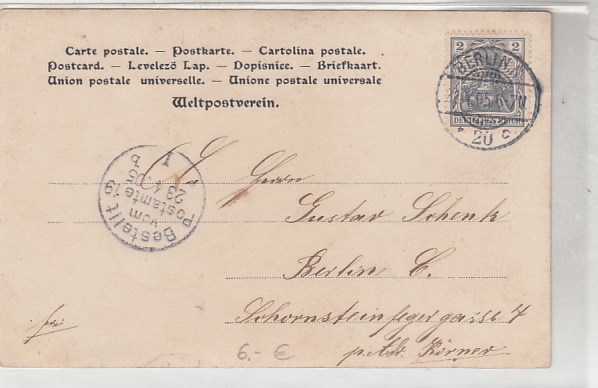 Carte postale. — Postkarte. — Cartolina postale.
Postcard. — Levelező Lap. — Dopisnice. — Briefkaart.
Union postale universelle. — Unione postale universale
Weltpostverein.
2 2
BERLIN
05
DEUTSCHES REICH
* 20 c.
Bestellt
vom
Postamte 19
23 4 05
Herrn
Gustav Schenk
Berlin C.
Schornsteinfegergasse 7
Körner
6.- €